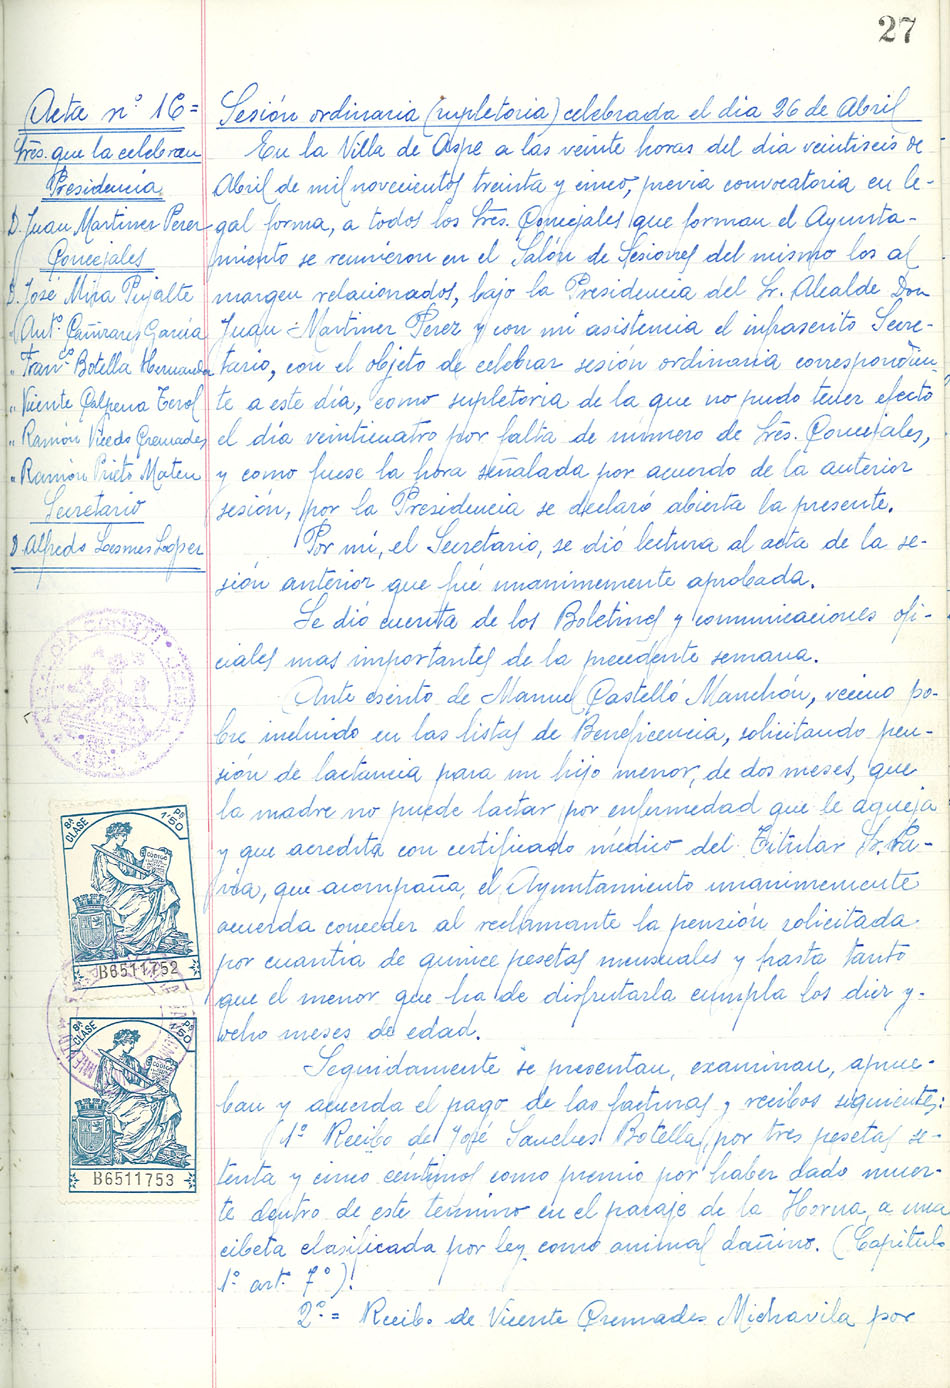 27
Acta nº 16=
Sres. que la celebran
Presidencia
D. Juan Martinez Perez
Concejales
D. José Mira Pujalte
" Antº Cañizares García
" Franᶜº Botella Hernandez
" Vicente Calpena Terol
" Ramón Vicedo Cremades
" Ramón Prieto Mateu
Secretario
D. Alfredo Lesmes Lopez
8ª CLASE
1'50 Pᵗˢ
B6511752
8ª CLASE
1'50 Pᵗˢ
B6511753
Sesión ordinaria (supletoria) celebrada el dia 26 de Abril
En la Villa de Aspe a las veinte horas del dia veintiseis de
Abril de mil novecientos treinta y cinco, previa convocatoria en le-
gal forma, a todos los Sres. Concejales que forman el Ayunta-
miento se reunieron en el Salón de Sesiones del mismo los al
margen relacionados, bajo la Presidencia del Sr. Alcalde Don
Juan Martinez Perez y con mi asistencia el infrascrito Secre-
tario, con el objeto de celebrar sesión ordinaria correspondien-
te a este día, como supletoria de la que no pudo tener efecto
el día veinticuatro por falta de número de Sres. Concejales,
y como fuese la hora señalada por acuerdo de la anterior
sesión, por la Presidencia se declaró abierta la presente.
Por mí, el Secretario, se dió lectura al acta de la se-
sión anterior que fué unanimemente aprobada.
Se dió cuenta de los Boletines y comunicaciones ofi-
ciales mas importantes de la precedente semana.
Ante escrito de Manuel Castelló Manchón, vecino po-
bre incluido en las listas de Beneficencia, solicitando pen-
sión de lactancia para un hijo menor, de dos meses, que
la madre no puede lactar por enfermedad que le aqueja
y que acredita con certificado médico del Titular Sr. Pa-
via, que acompaña, el Ayuntamiento unanimemente
acuerda conceder al reclamante la pensión solicitada
por cuantía de quince pesetas mensuales y hasta tanto
que el menor que ha de disfrutarla cumpla los diez y-
ocho meses de edad.
Seguidamente se presentan, examinan, aprue-
ban y acuerda el pago de las facturas y recibos siguientes:
1º Recibo de José Sanches Botella, por tres pesetas se-
tenta y cinco céntimos como premio por haber dado muer-
te dentro de este termino en el paraje de la Horna, a una
cibeta clasificada por ley como animal dañino. (Capitulo
1º artº 7º).
2º= Recibo de Vicente Cremades Michavila por